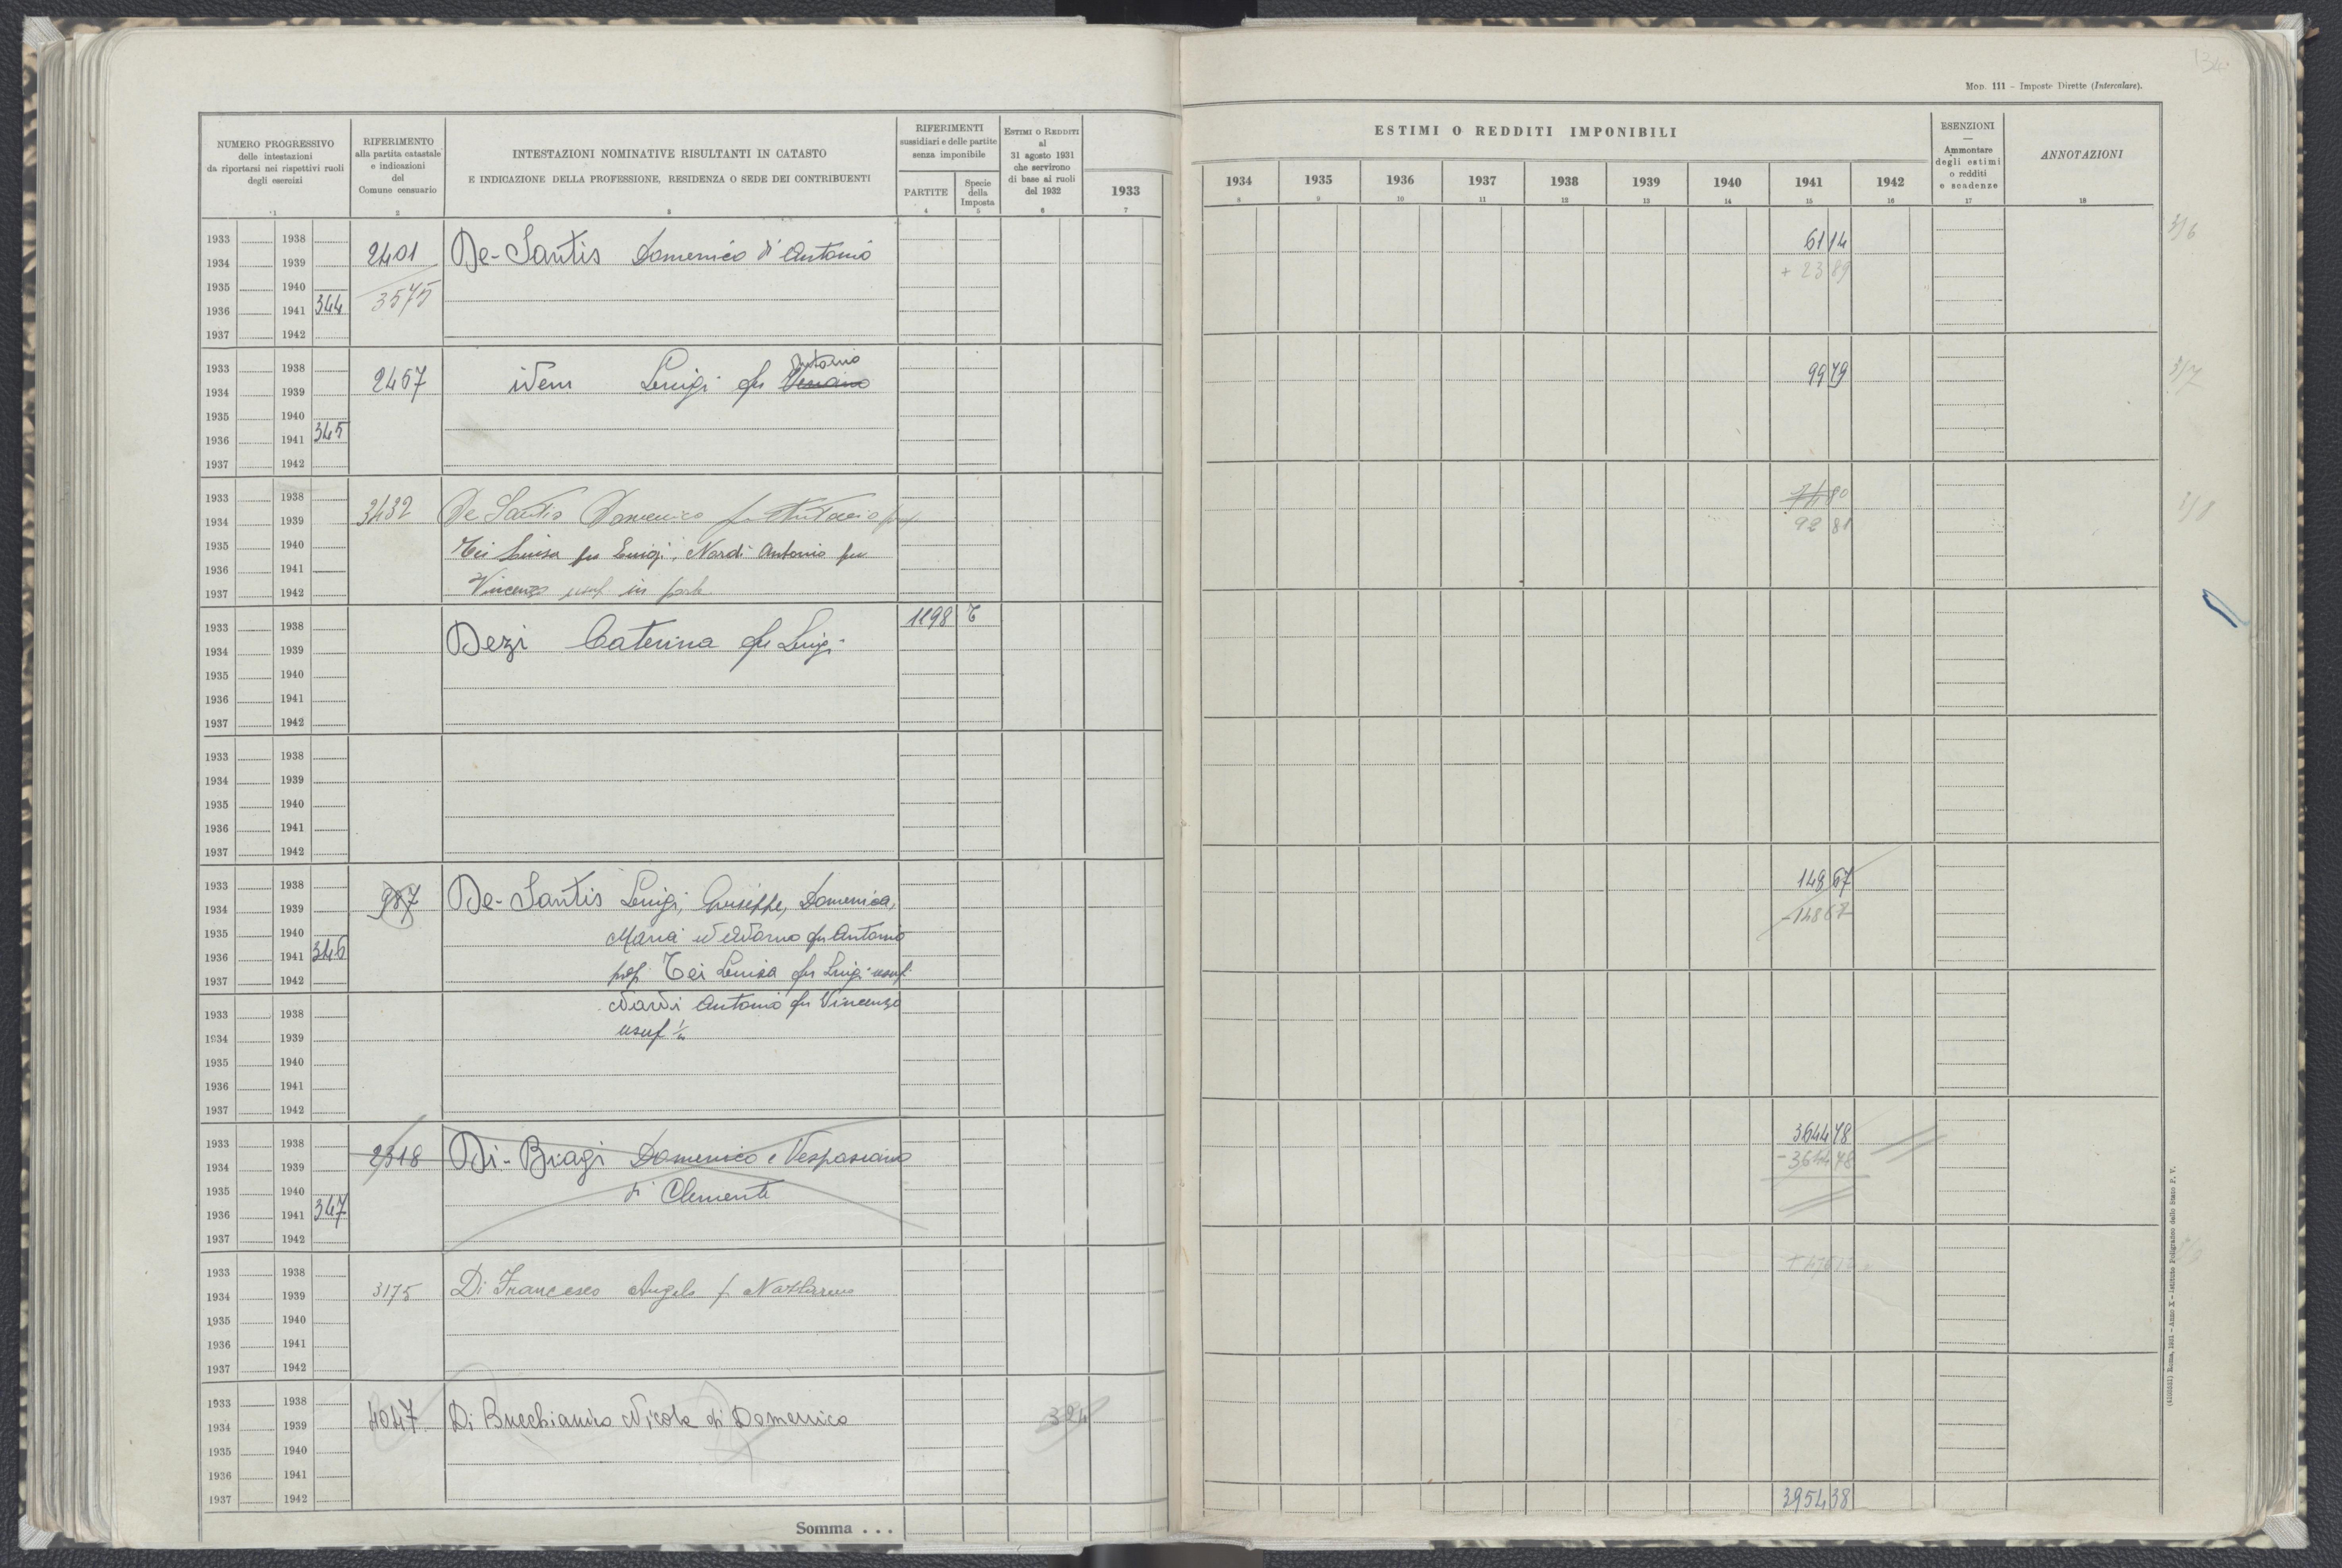 134
Mod. 111 - Imposte Dirette (Intercalare).
NUMERO PROGRESSIVO
delle intestazioni
da riportarsi nei rispettivi ruoli
degli esercizi
1
RIFERIMENTO
alla partita catastale
e indicazioni
del
Comune censuario
2
INTESTAZIONI NOMINATIVE RISULTANTI IN CATASTO
E INDICAZIONE DELLA PROFESSIONE, RESIDENZA O SEDE DEI CONTRIBUENTI
3
RIFERIMENTI
sussidiari e delle partite
senza imponibile
PARTITE
4
Specie
della
Imposta
5
Estimi o Redditi
al
31 agosto 1931
che servirono
di base ai ruoli
del 1932
6
1933
7
ESTIMI O REDDITI IMPONIBILI
1934 1935 1936 1937 1938 1939 1940 1941 1942
8 9 10 11 12 13 14 15 16
ESENZIONI
—
Ammontare
degli estimi
o redditi
e scadenze
17
ANNOTAZIONI
18
1933 1938
1934 1939 2401 De-Santis Domenico di Antonio 61 14
1935 1940 3575 + 23 89
1936 1941 344
1937 1942
1933 1938 Antonio
1934 1939 2457 idem Luigi fu 99 79
1935 1940
1936 1941 345
1937 1942
1933 1938
1934 1939 3432 De Santis Domenico fu Antonio 92 81
1935 1940 Tei Luisa fu Luigi, Nardi Antonio fu
1936 1941
1937 1942 Vincenzo usuf in parte
1933 1938 1198 T
1934 1939 Dezi Caterina fu Luigi
1935 1940
1936 1941
1937 1942
1933 1938
1934 1939
1935 1940
1936 1941
1937 1942
1933 1938 148 67
1934 1939 987 De-Santis Luigi, Giuseppe, Domenica, - 148 67
1935 1940 Maria ed Adorno fu Antonio
1936 1941 346
1937 1942 prop. Tei Luisa fu Luigi usuf.
1933 1938 Nardi Antonio fu Vincenzo
1934 1939 usuf ½
1935 1940
1936 1941
1937 1942
1933 1938 3644 78
1934 1939 2318 Di-Biagi Domenico e Vespasiano - 3644 78
1935 1940 di Clemente
1936 1941 347
1937 1942
1933 1938
1934 1939 3175 Di Francesco Angelo f Nazzareno
1935 1940
1936 1941
1937 1942
1933 1938
1934 1939 4047 Di Bucchianico Nicola di Domenico
1935 1940
1936 1941
1937 1942 3954 38
Somma . . .
Roma, 1931 - Anno X - Istituto Poligrafico dello Stato P. V.